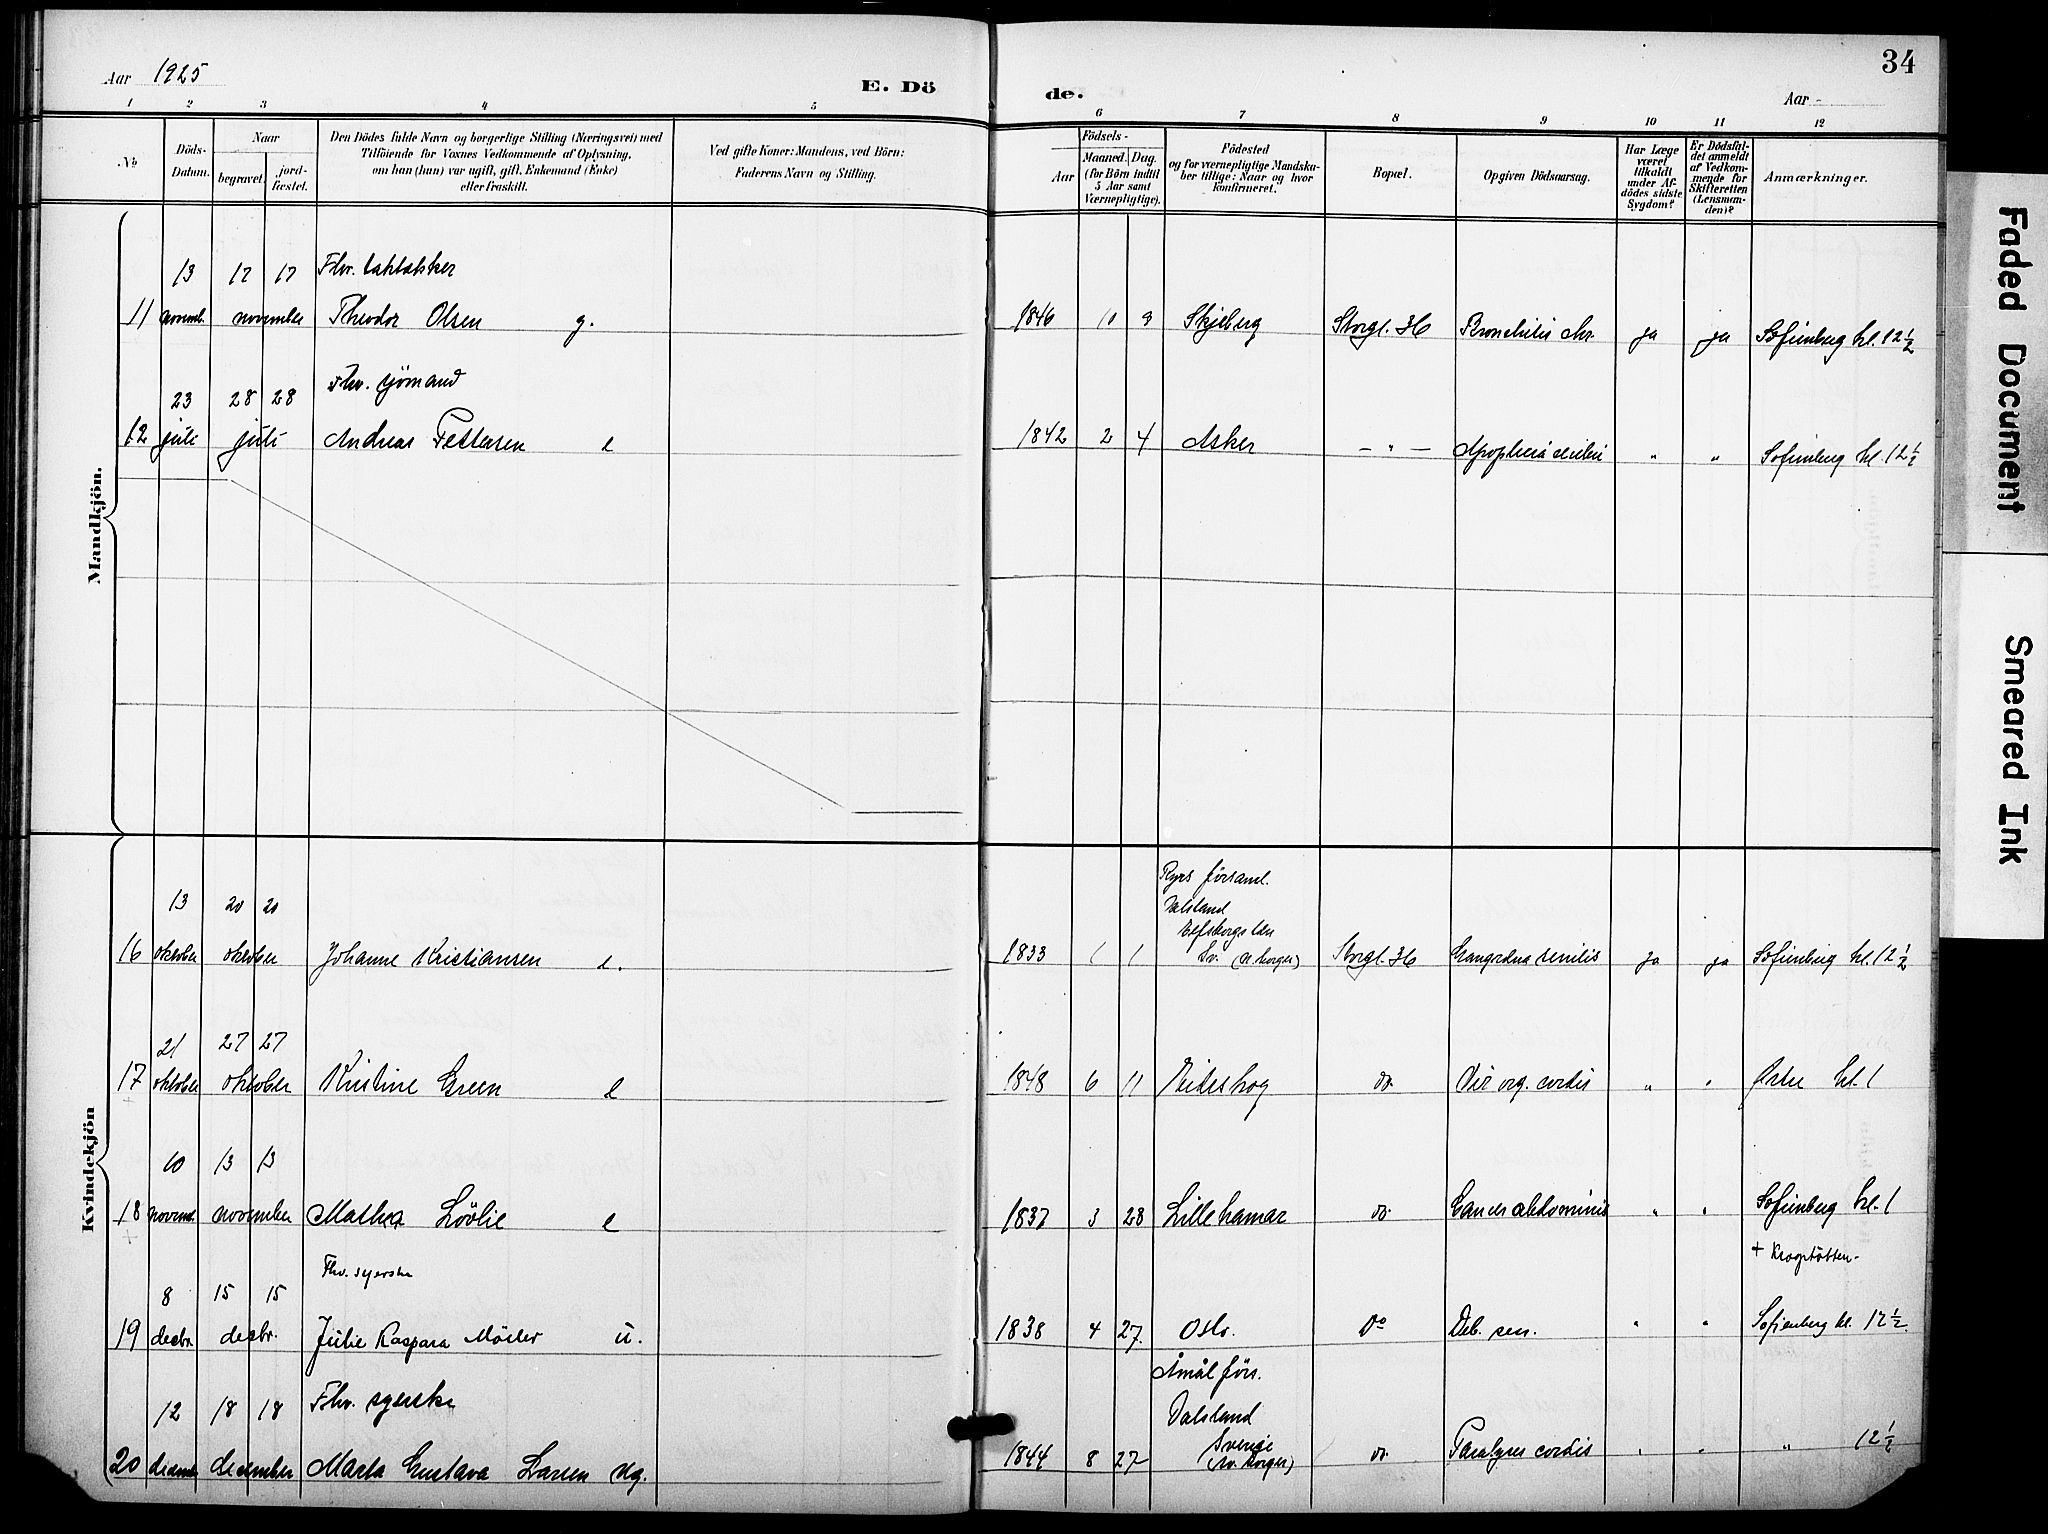 Aar 1925
E. Dö
de.
34
Aar
1 2 3 4 5 6 7 8 9 10 11 12
No
Döds-
Datum.
Naar
begravet.
jord-
fæstet.
Den Dödes fulde Navn og borgerlige Stilling (Næringsvei) med
Tilföiende for Voxnes Vedkommende af Oplysning,
om han (hun) var ugift, gift, Enkemand (Enke)
eller fraskilt.
Ved gifte Koner: Mandens, ved Börn:
Faderens Navn og Stilling.
Födsels-
Aar
Maaned. Dag.
(for Börn indtil
5 Aar samt
Værnepligtige).
Födested
og for værnepligtige Mandska-
ber tillige: Naar og hvor
konfirmeret.
Bopæl.
Opgiven Dödsaarsag.
Har Læge
været
tilkaldt
under Af-
dödes sidste
Sygdom?
Er Dödsfal-
det anmeldt
af Vedkom-
mende for
Skifteretten
(Lensman-
den)?
Anmærkninger.
Mandkjön.
13 17 17 Fhv.
11 novemb. november Theodor Olsen g. 1846 10 9 Skjeberg Storgt. 36 Bronchitis chr. ja ja Sofienberg kl. 12 1/2
23 28 28 Fhv. sjömand
12 juli juli Andreas Pettersen e 1842 2 4 Asker — " — " " Sofienberg kl. 12 1/2
Kvindekjön
Ryrs församl.
13 20 20 Dalsland
Elfsborgs län
16 oktober oktober Johanne Kristiansen e. 1833 1 1 Sv. (n. borger) Storgt. 36 Gangræna senilis ja ja Sofienberg kl. 12 1/2
21 27 27
17 oktober oktober Kristine Green e 1848 6 11 Eidskog do. Vit. org. cordis " " Østre kl. 1
10 13 13
18 novemb. november Mathea Lövlie e 1837 3 28 Lillehamar do. Cancer abdominis " " Sofienberg kl. 1
+ Krogstötten.
Fhv. syerske
8 15 15
19 decbr. decbr. Julie Kaspara Möller u. 1838 4 27. Oslo. Do Deb. sen. " " Sofienberg kl. 12 1/2.
Åmål förs.
12 18 18 Fhv. syerske Dalsland
Sverige
20 decemb. december Marta Gustava Larsen sg. 1844 8 27 (sv. borger) do. Paralyses cordis " " " 12 1/2
Faded Document
Smeared Ink